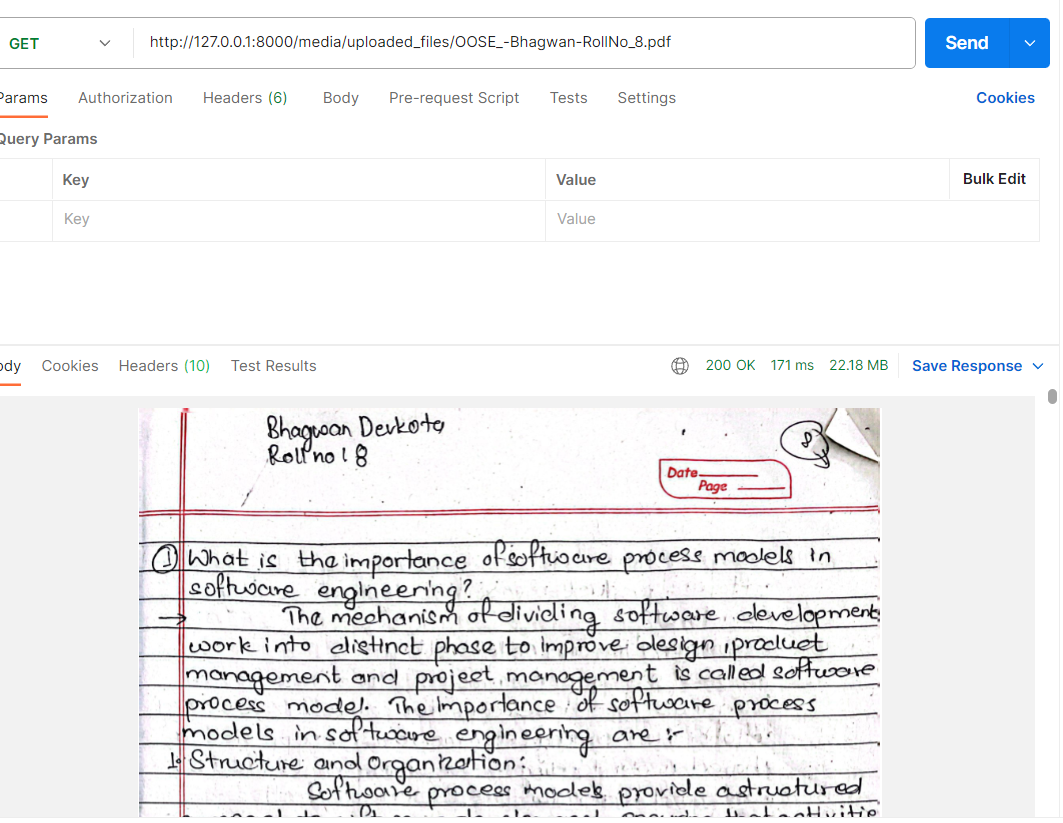 GET
http://127.0.0.1:8000/media/uploaded_files/OOSE_-Bhagwan-RollNo_8.pdf
Send
Params Authorization Headers (6) Body Pre-request Script Tests Settings Cookies
Query Params
Key Value Bulk Edit
Key Value
ody Cookies Headers (10) Test Results 200 OK 171 ms 22.18 MB Save Response
Bhagwan Devkota
Roll no : 8
8
Date
Page
① What is the importance of software process models in
software engineering?
→ The mechanism of dividing software development
work into distinct phase to improve design, product
management and project management is called software
process model. The importance of software process
models in software engineering are :-
1. Structure and Organization:
Software process models provide a structured